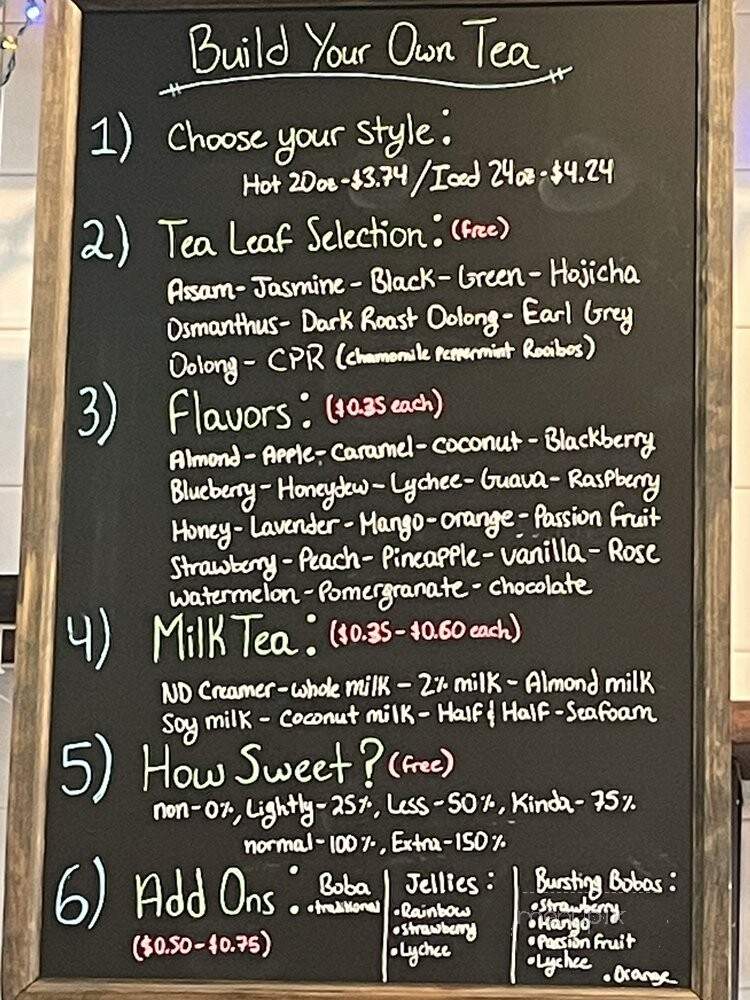 Build Your Own Tea
1) Choose your style:
Hot 20oz - $3.74 / Iced 24oz - $4.24
2) Tea Leaf Selection: (free)
Assam - Jasmine - Black - Green - Hojicha
Osmanthus - Dark Roast Oolong - Earl Grey
Oolong - CPR (chamomile Peppermint Rooibos)
3) Flavors: ($0.35 each)
Almond - Apple - Caramel - coconut - Blackberry
Blueberry - Honeydew - Lychee - Guava - Raspberry
Honey - Lavender - Mango - orange - Passion Fruit
Strawberry - Peach - Pineapple - vanilla - Rose
watermelon - Pomergranate - chocolate
4) Milk Tea: ($0.35 - $0.60 each)
ND Creamer - whole milk - 2% milk - Almond milk
Soy milk - Coconut milk - Half & Half - Seafoam
5) How Sweet? (free)
non - 0%, Lightly - 25%, Less - 50%, Kinda - 75%
normal - 100%, Extra - 150%
6) Add Ons:
($0.50 - $0.75)
Boba
• traditional
Jellies:
• Rainbow
• Strawberry
• Lychee
Bursting Bobas:
• Strawberry
• Mango
• Passion Fruit
• Lychee
• Orange